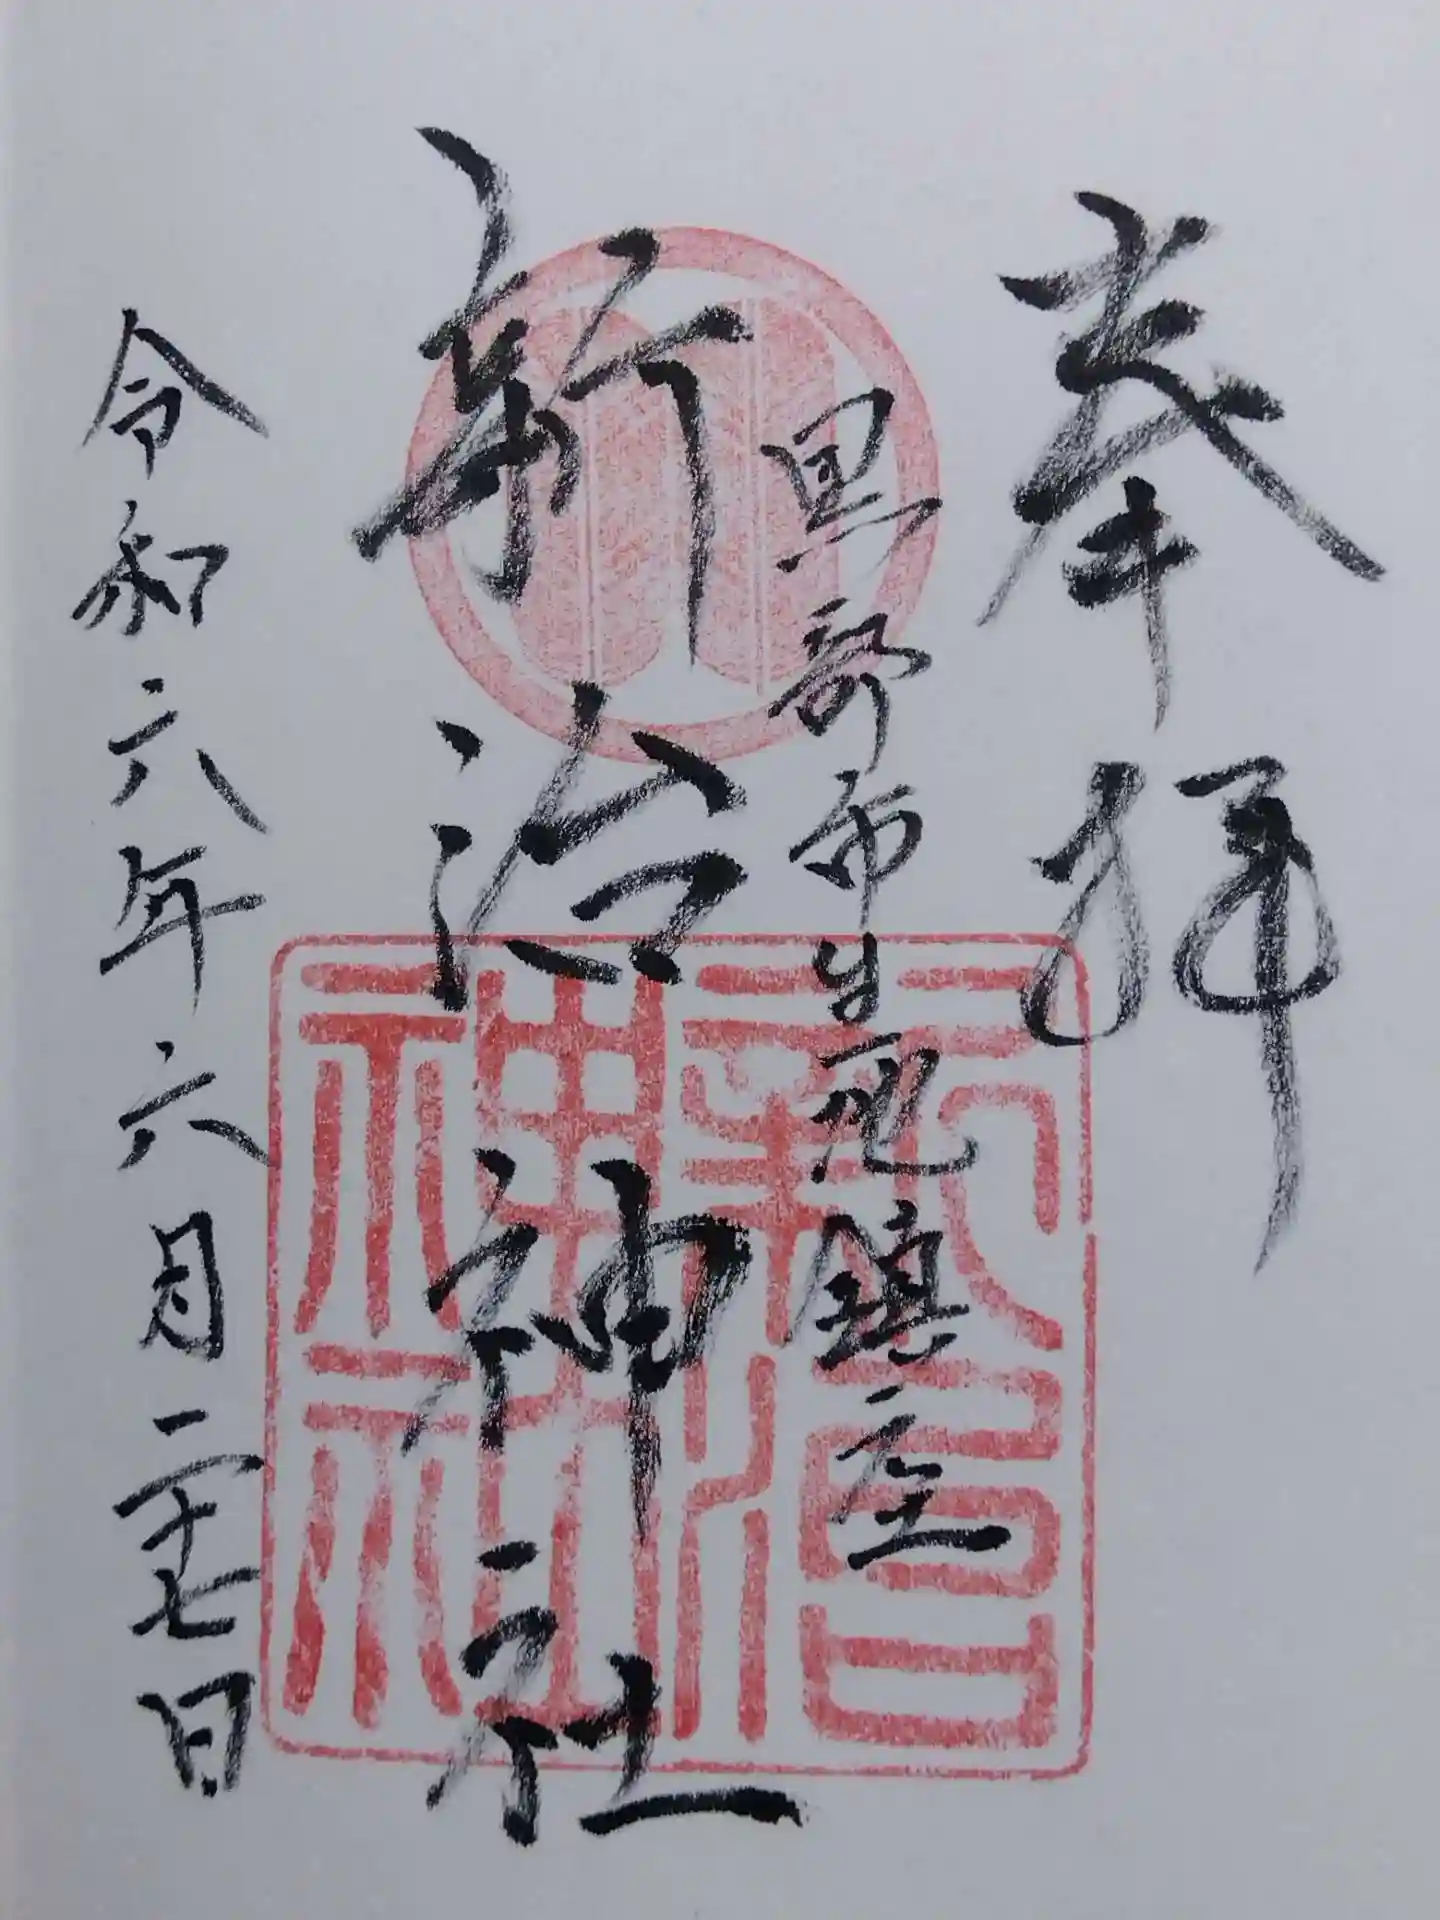 奉拝
黒部市生地鎮座
新治神社
令和六年六月二十七日
新治神社